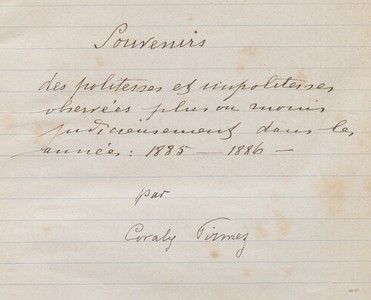 Souvenirs
des politesses et impolitesses
observées plus ou moins
judicieusement dans les
années : 1885 – 1886 –
par
Coraly Firmez